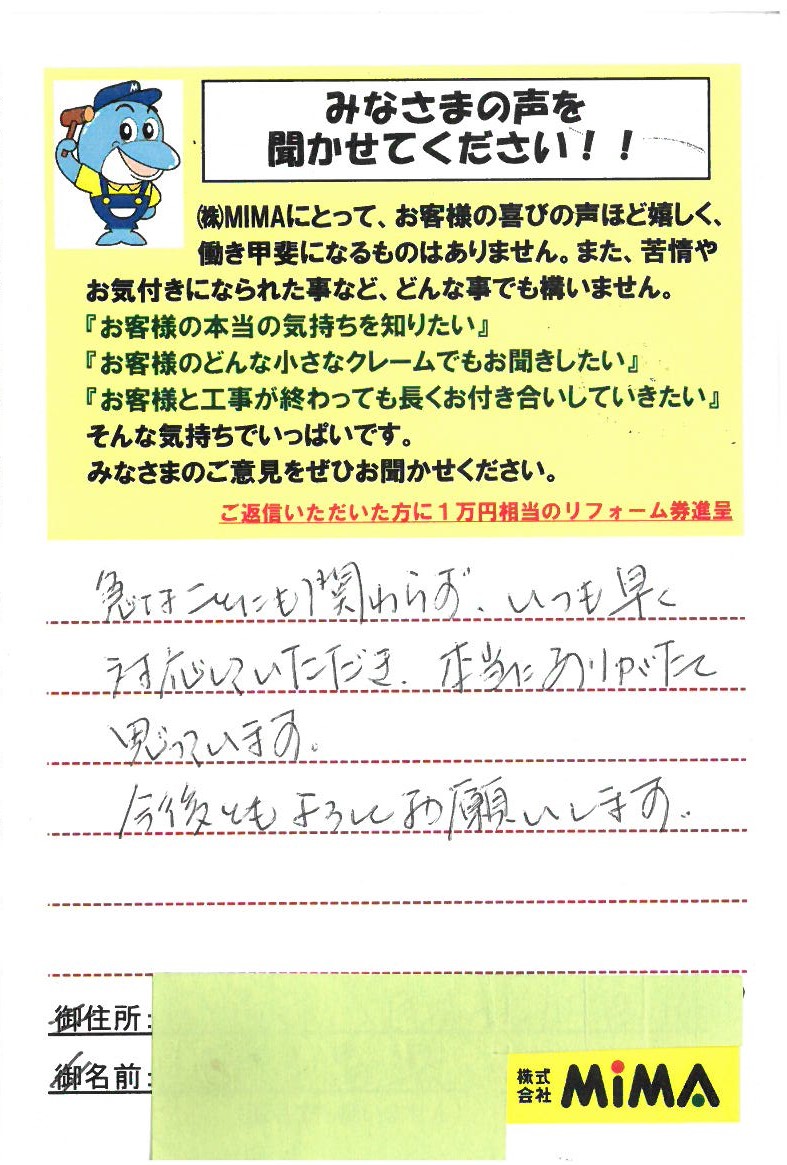 みなさまの声を
聞かせてください！！
㈱MIMAにとって、お客様の喜びの声ほど嬉しく、
働き甲斐になるものはありません。また、苦情や
お気付きになられた事など、どんな事でも構いません。
『お客様の本当の気持ちを知りたい』
『お客様のどんな小さなクレームでもお聞きしたい』
『お客様と工事が終わっても長くお付き合いしていきたい』
そんな気持ちでいっぱいです。
みなさまのご意見をぜひお聞かせください。
ご返信いただいた方に１万円相当のリフォーム券進呈
急なことにも関わらず、いつも早く
対応していただき、本当にありがたく
思っています。
今後ともよろしくお願いします。
御住所：
御名前：
株式
会社 MiMA
M